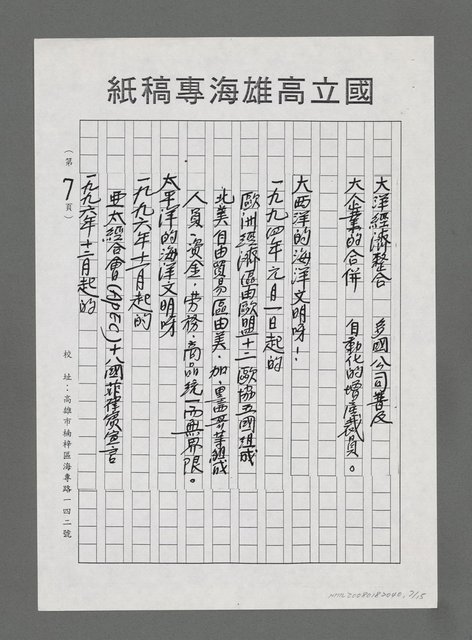 國立高雄海專稿紙
(第7頁)
大洋經濟整合　多國公司普及
大企業的合併　自動化的增產裁員。
大西洋的海洋文明呀！
一九九四年元月一日起的
歐洲經濟區由歐盟十二歐協五國組成
北美自由貿易區由美．加．墨西哥等組成
人員．資金．勞務．商品統一而無界限。
太平洋的海洋文明呀
一九九六年十一月起的
亞太經合會(APEC)十八國菲律賓宣言
一九九六年十二月起的
校址：高雄市楠梓區海專路一四二號
NMTL20080182040, 7/15